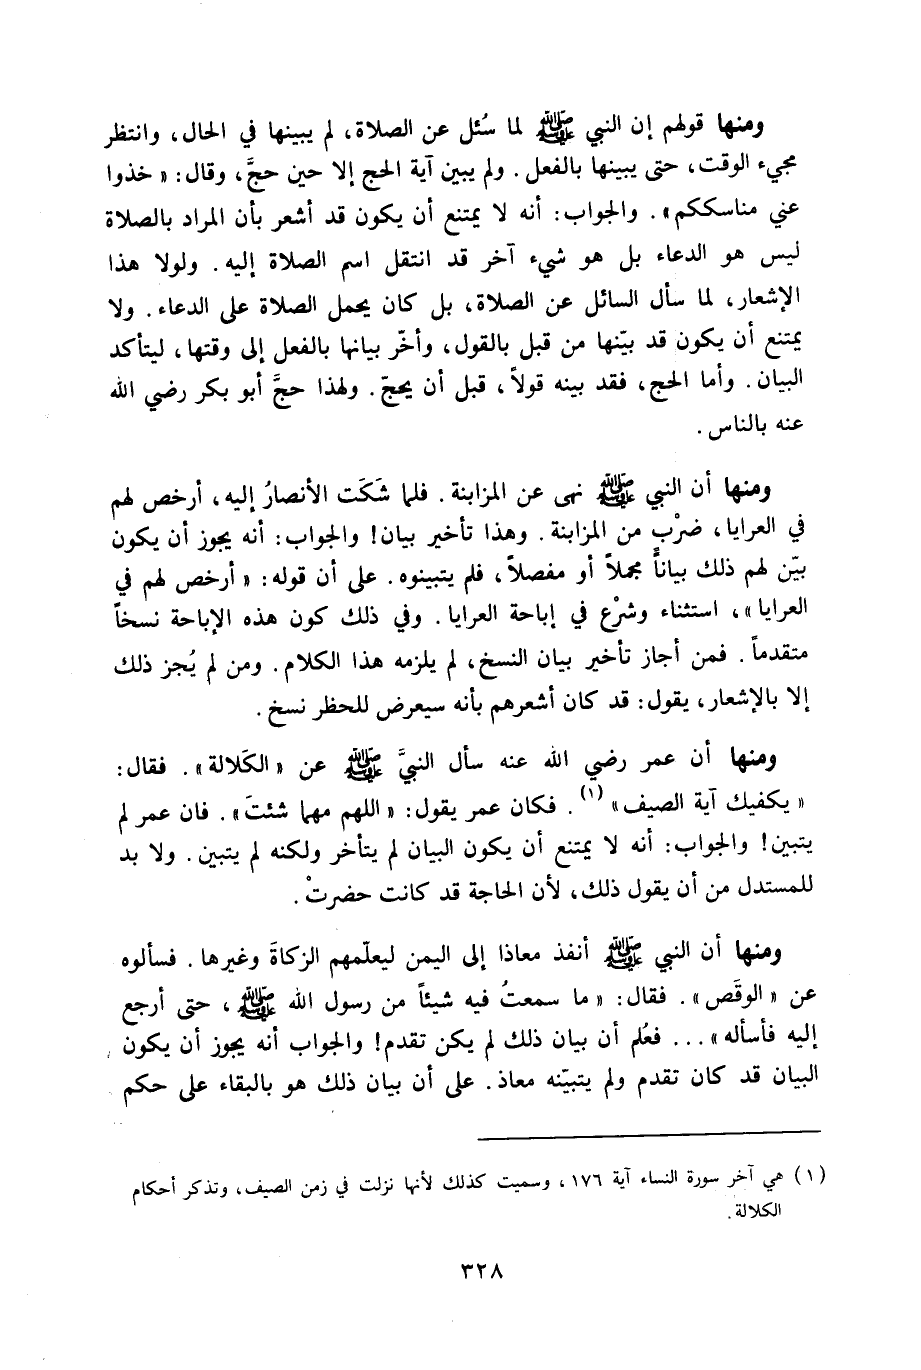 ومنها قولهم إن النبي ﷺ لما سُئل عن الصلاة، لم يبينها في الحال، وانتظر
مجيء الوقت، حتى يبينها بالفعل. ولم يبين آية الحج إلا حين حجَّ، وقال: «خذوا
عني مناسككم». والجواب: أنه لا يمتنع أن يكون قد أشعر بأن المراد بالصلاة
ليس هو الدعاء بل هو شيء آخر قد انتقل اسم الصلاة إليه. ولولا هذا
الإشعار، لما سأل السائل عن الصلاة، بل كان يحمل الصلاة على الدعاء. ولا
يمتنع أن يكون قد بيّنها من قبل بالقول، وأخّر بيانها بالفعل إلى وقتها، ليتأكد
البيان. وأما الحج، فقد بينه قولاً، قبل أن يحجّ. ولهذا حجَّ أبو بكر رضي الله
عنه بالناس.
ومنها أن النبي ﷺ نهى عن المزابنة. فلما شَكَت الأنصارُ إليه، أرخص لهم
في العرايا، ضرْبٍ من المزابنة. وهذا تأخير بيان! والجواب: أنه يجوز أن يكون
بيّن لهم ذلك بياناً مجملاً أو مفصلاً، فلم يتبينوه. على أن قوله: «أرخص لهم في
العرايا»، استثناء وشرْع في إباحة العرايا. وفي ذلك كون هذه الإباحة نسخاً
متقدماً. فمن أجاز تأخير بيان النسخ، لم يلزمه هذا الكلام. ومن لم يُجز ذلك
إلا بالإشعار، يقول: قد كان أشعرهم بأنه سيعرض للحظر نسخ.
ومنها أن عمر رضي الله عنه سأل النبيَّ ﷺ عن «الكَلالة». فقال:
«يكفيك آية الصيف» (١). فكان عمر يقول: «اللهم مهما شئتَ». فان عمر لم
يتبين! والجواب: أنه لا يمتنع أن يكون البيان لم يتأخر ولكنه لم يتبين. ولا بد
للمستدل من أن يقول ذلك، لأن الحاجة قد كانت حضرتْ.
ومنها أن النبي ﷺ أنفذ معاذا إلى اليمن ليعلّمهم الزكاةَ وغيرها. فسألوه
عن «الوقَص». فقال: «ما سمعتُ فيه شيئاً من رسول الله ﷺ، حتى أرجع
إليه فأسأله»... فعُلم أن بيان ذلك لم يكن تقدم! والجواب أنه يجوز أن يكون
البيان قد كان تقدم ولم يتبيّنه معاذ. على أن بيان ذلك هو بالبقاء على حكم
(١) هي آخر سورة النساء آية ١٧٦، وسميت كذلك لأنها نزلت في زمن الصيف، وتذكر أحكام
الكلالة.
٣٢٨